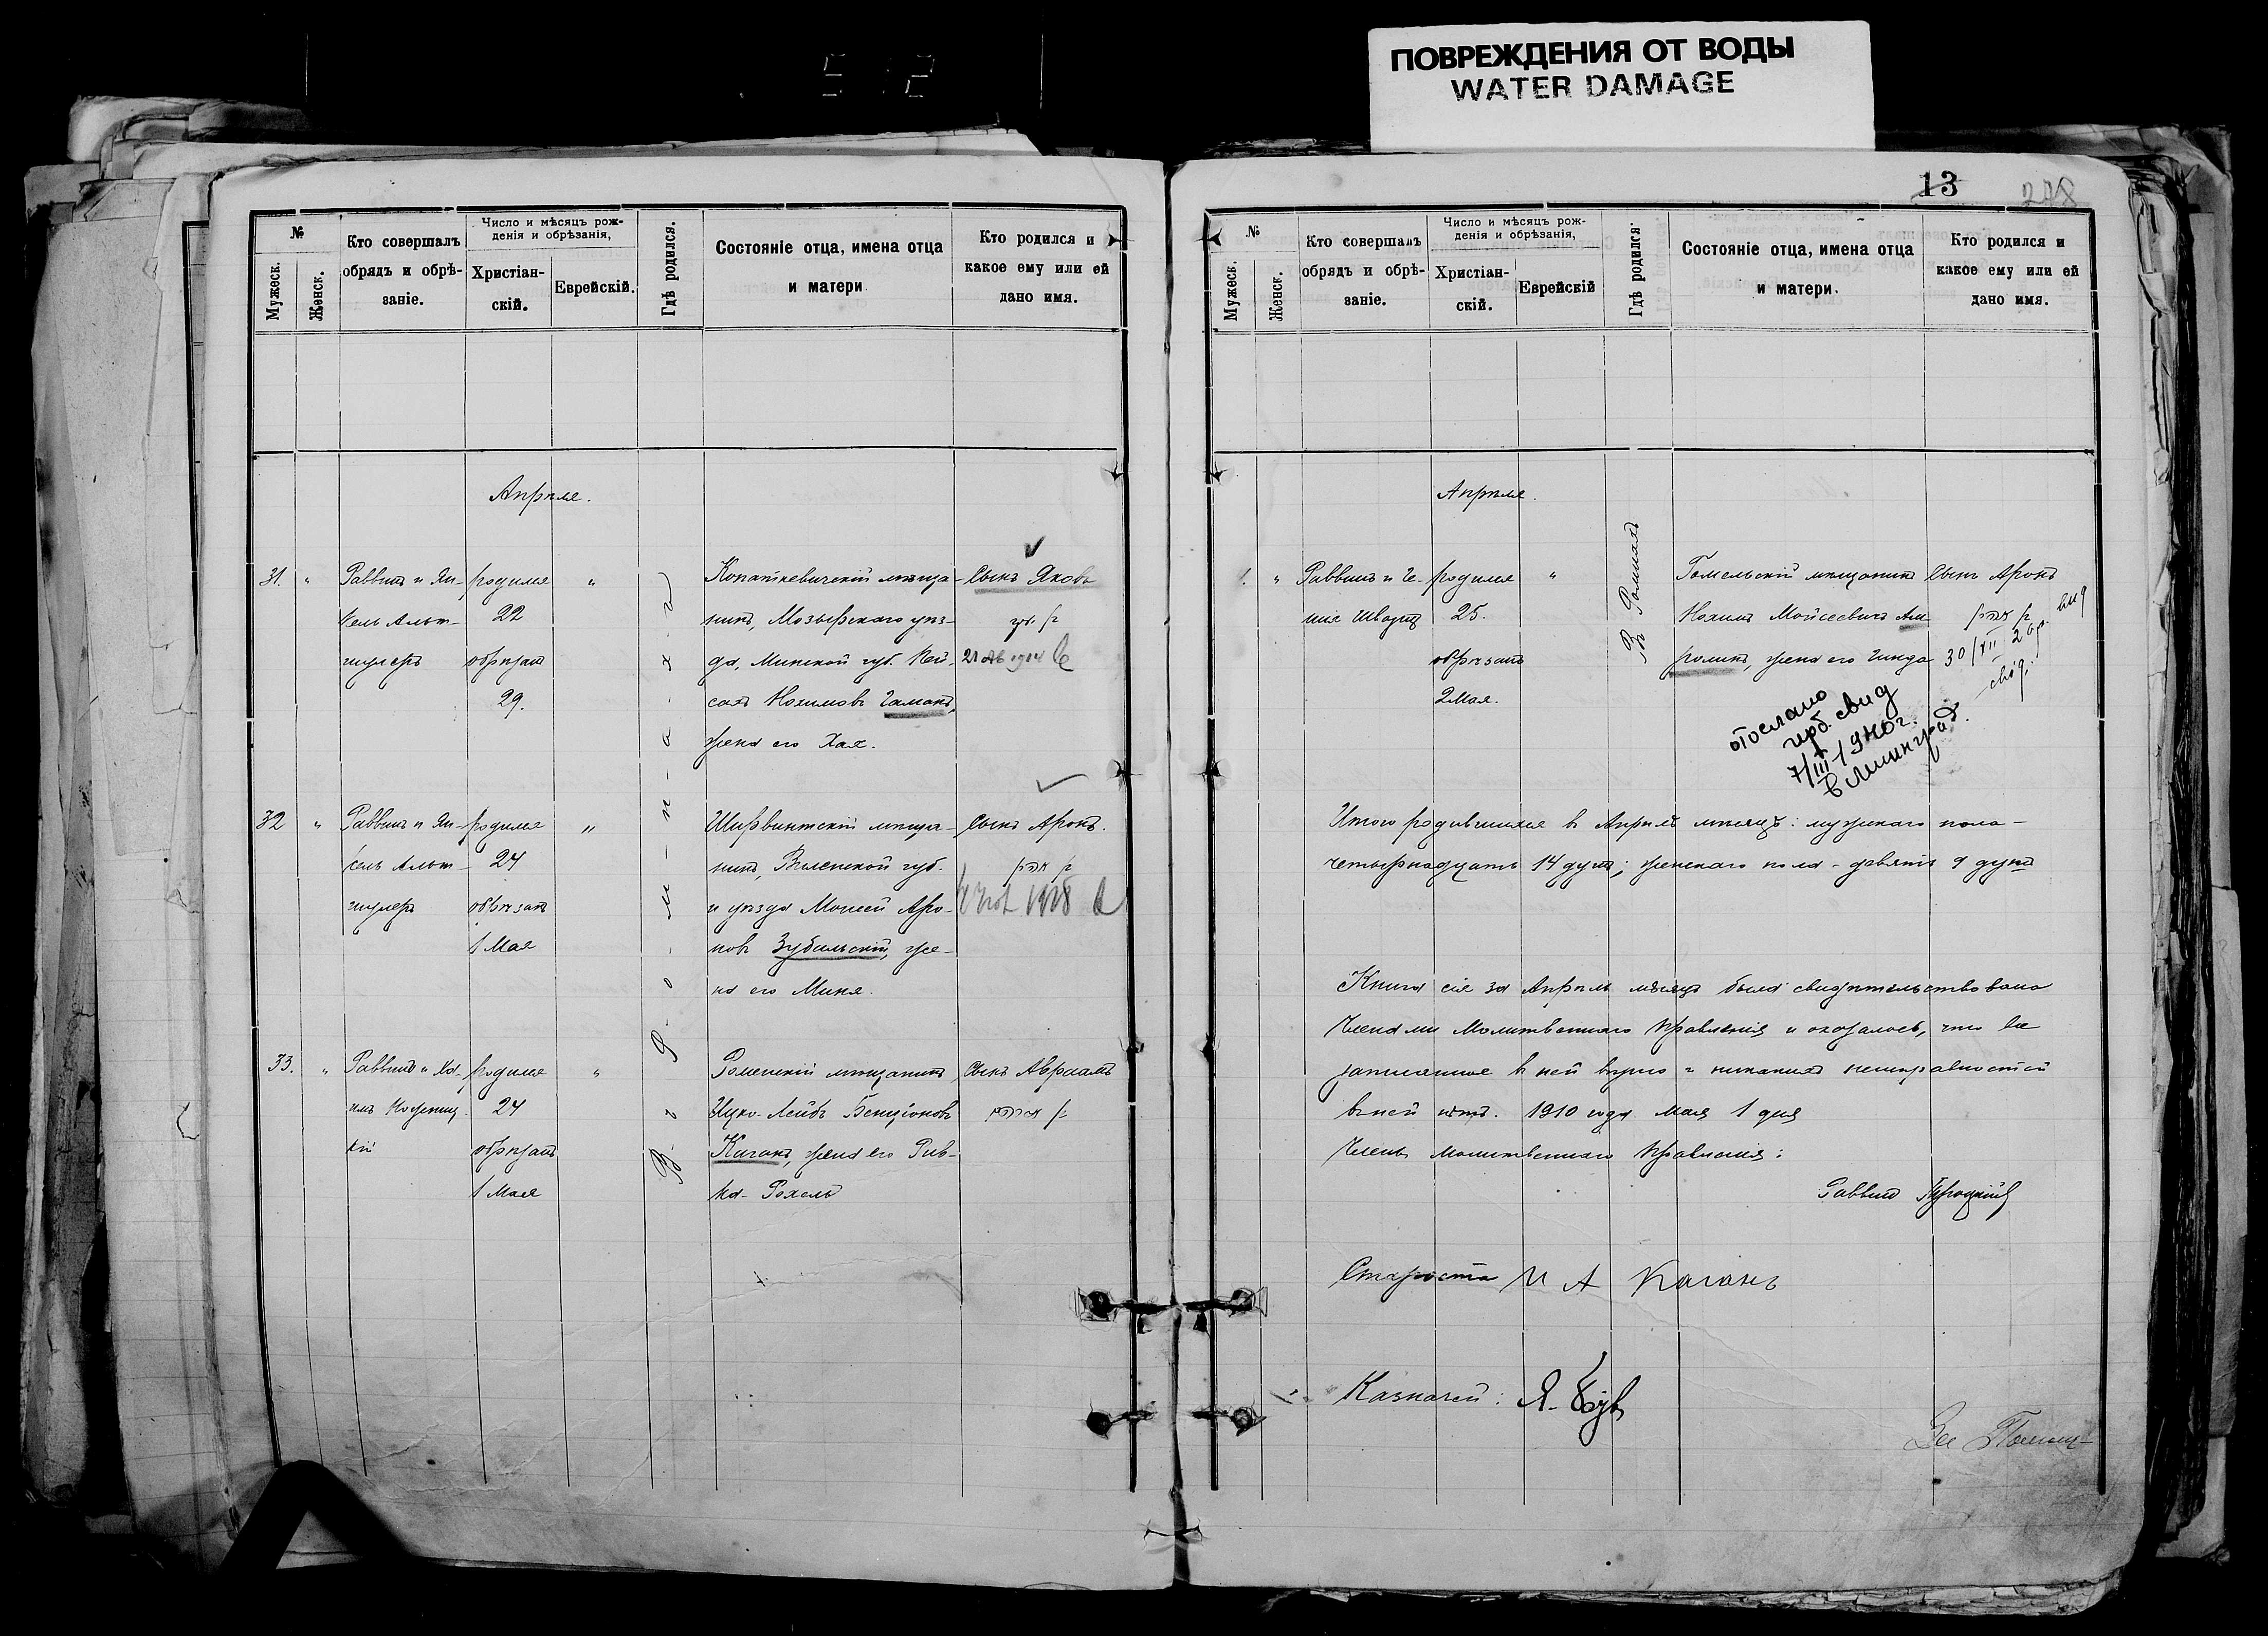 ПОВРЕЖДЕНИЯ ОТ ВОДЫ
WATER DAMAGE
№
Мужеск.
Женск.
Кто совершалъ
обрядъ и обрѣ-
заніе.
Число и мѣсяцъ рож-
денія и обрѣзанія,
Христіан-
скій.
Еврейскій.
Гдѣ родился.
Состояніе отца, имена отца
и матери
Кто родился и
какое ему или ей
дано имя.
Апрѣля.
31.
"
Раввинъ и Ян-
кель Альт-
шулеръ
родился
22
обрѣзанъ
29.
"
Копаткевичскій мѣща-
нинъ, Мозырскаго уѣз-
да, Минской губ. Пей-
сахъ Нохимовъ Гаманъ,
жена его Хая.
Сынъ Яковъ
21 Ав 1914
32
"
Раввинъ и Ян-
кель Альт-
шулеръ
родился
24
обрѣзанъ
1 Мая
"
Ширвинтскій мѣща-
нинъ, Виленской губ.
и уѣзда Моисей Аро-
новъ Зубильскій, же-
на его Миня.
Сынъ Аронъ.
33.
"
Раввинъ и Ха-
родился
24
обрѣзанъ
1 Мая
"
Роменскій мѣщанинъ
Ицко-Лейбъ Бенціоновъ
Каганъ, жена его Рив-
ка-Рохель
Сынъ Авраамъ
В-ъ Р-о-м-н-а-х-ъ
13
278
№
Мужеск.
Женск.
Кто совершалъ
обрядъ и обрѣ-
заніе.
Число и мѣсяцъ рож-
денія и обрѣзанія,
Христіан-
скій.
Еврейскій
Гдѣ родился.
Состояніе отца, имена отца
и матери.
Кто родился и
какое ему или ей
дано имя.
Апрѣля.
"
Раввинъ и Че-
родился
25.
обрѣзанъ
2 Мая.
"
Въ Ромнахъ
Гомельскій мѣщанинъ
Нохимъ Мойсеевичъ
жена его Гинда
Сынъ Аронъ
30/XII
отослано
герб. свид
7/III-1940 г.
в Ленинград.
Итого родившихся въ Апрѣлѣ мѣсяцѣ: мужскаго пола-
четырнадцать 14 душъ; женскаго пола-девять 9 душъ
Книга сія за Апрѣль мѣсяцъ была свидѣтельствована
членами Молитвеннаго Правленія и оказалось, что все
записанное въ ней вѣрно и никакихъ неисправностей
въ ней нѣтъ. 1910 года Мая 1 дня
Члены Молитвеннаго Правленія:
Раввинъ
Староста И А Каганъ
Казначей: Я.